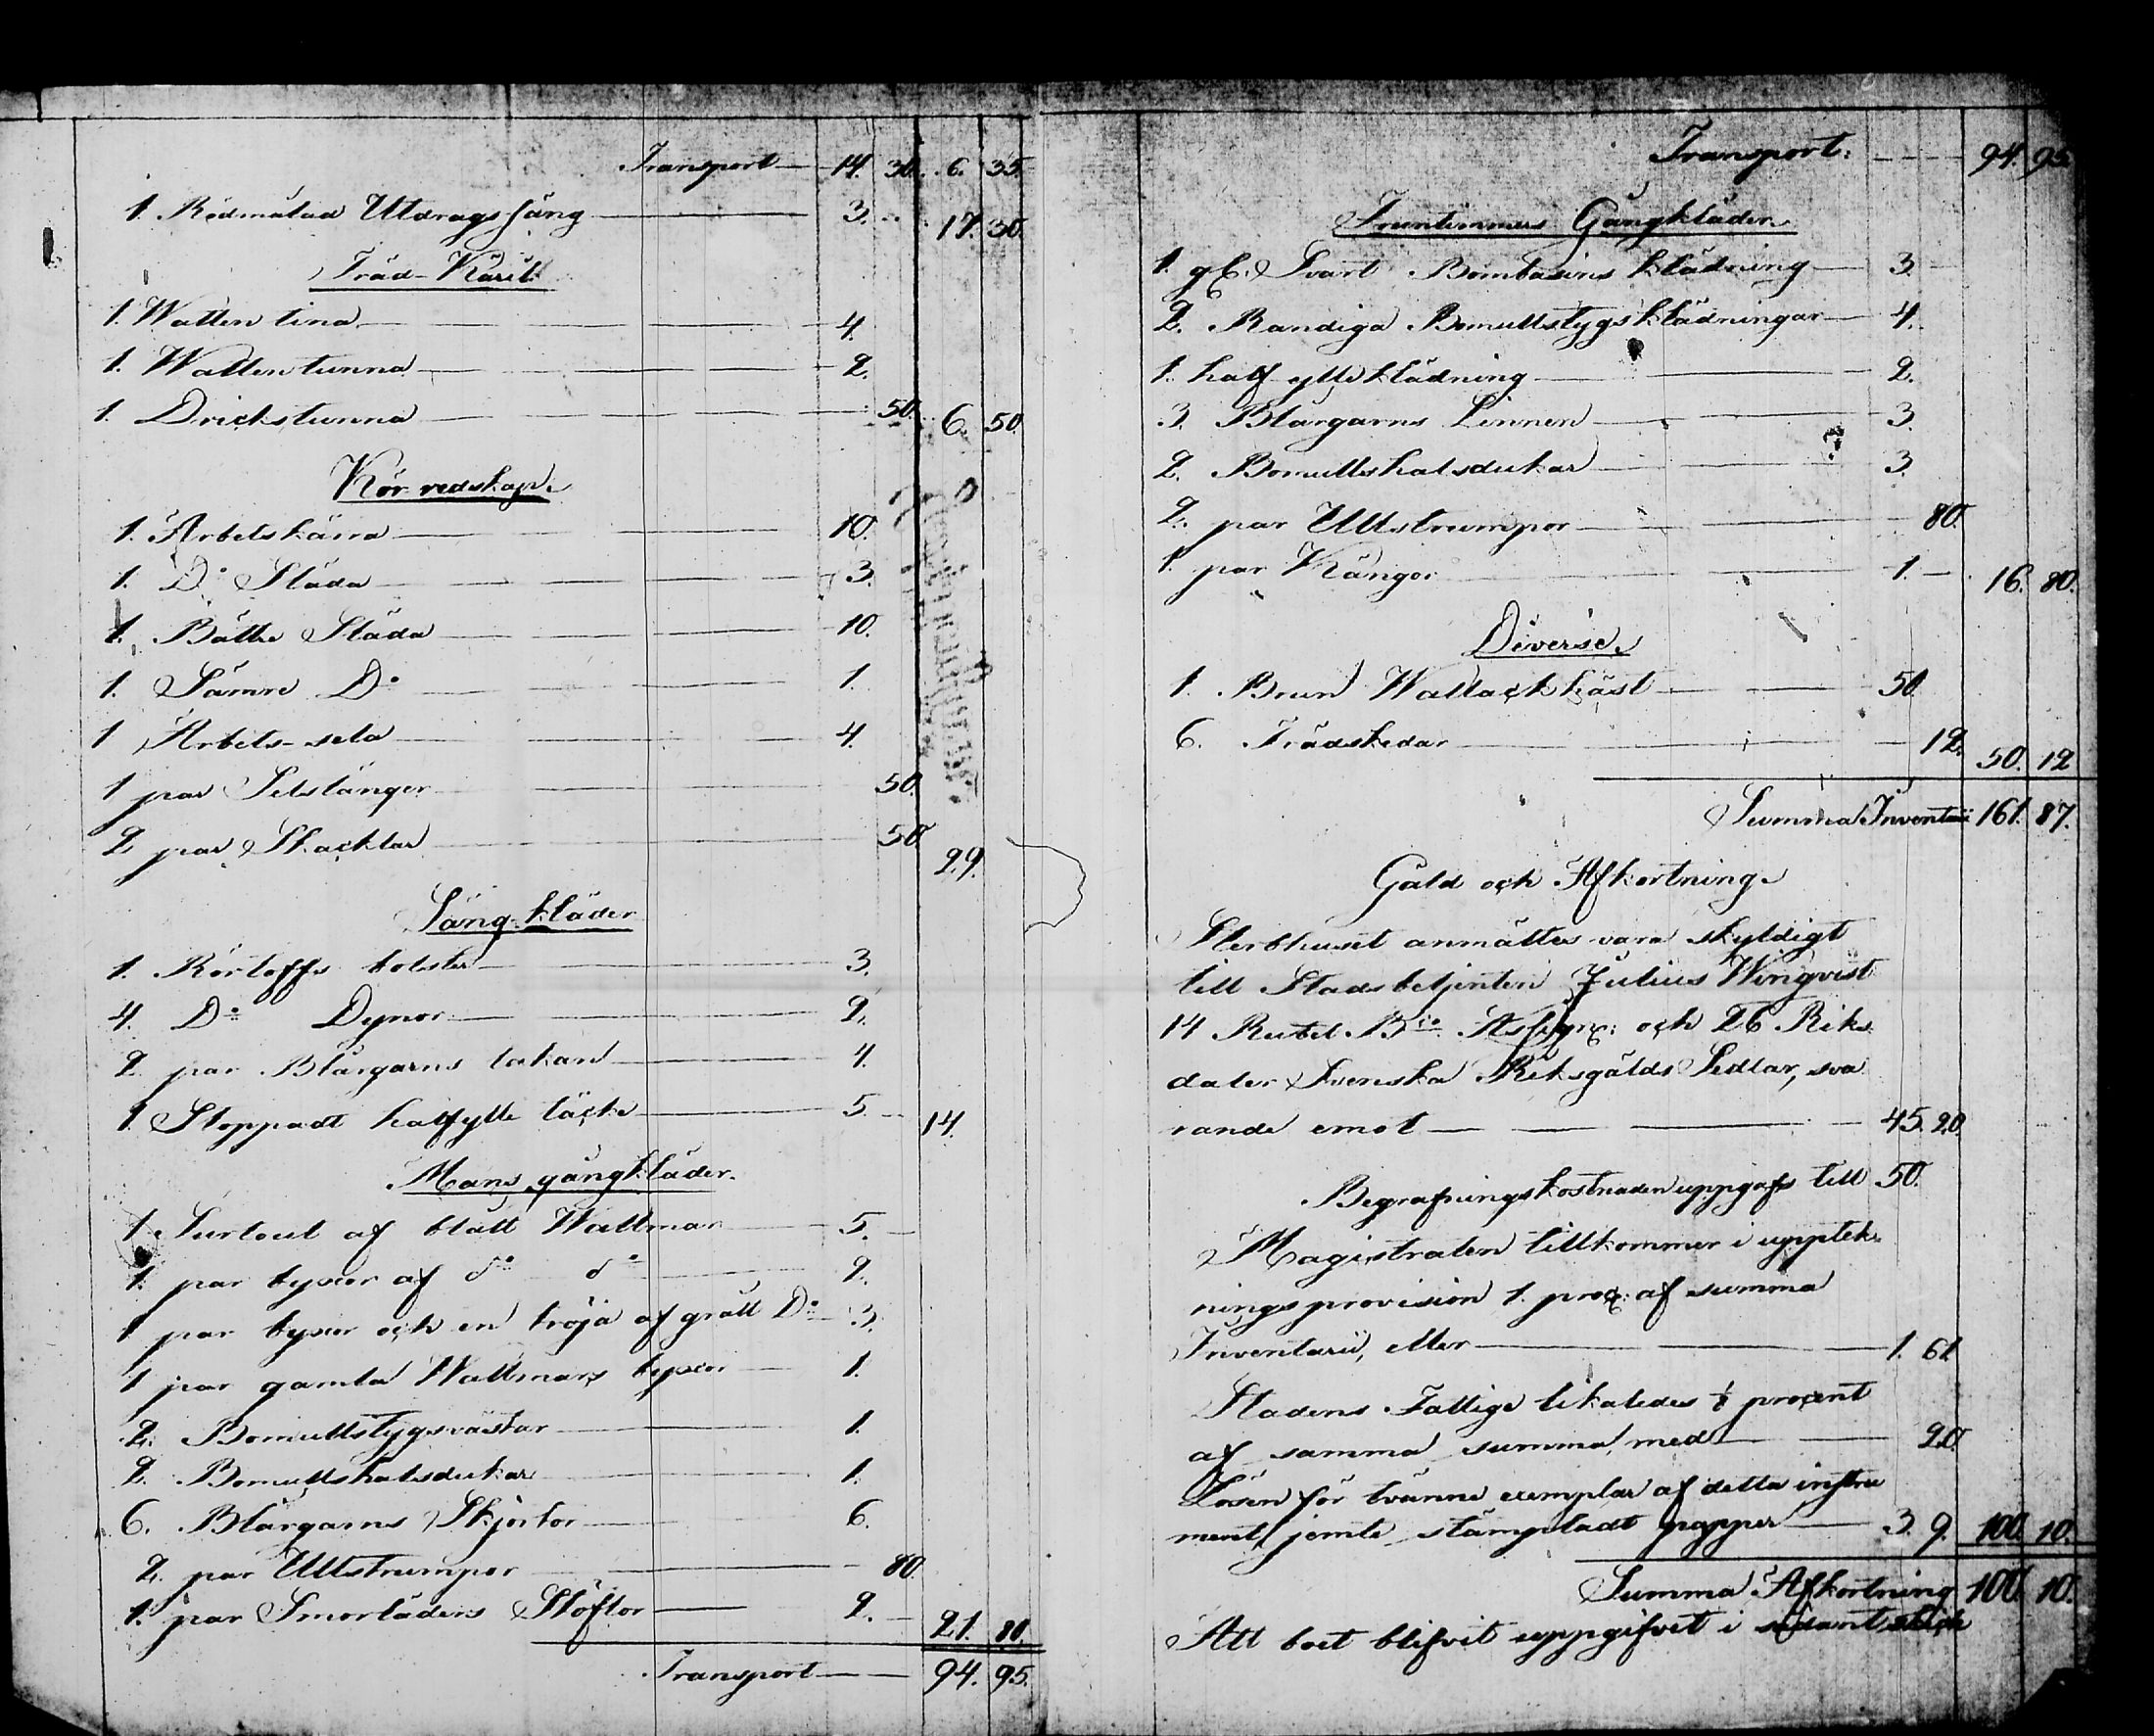 Transport — 14. 30. 6. 35.
1. Rödmålad Utdragssäng — 3. 17. 30.
Träd-Käril
1. Watten tina — 4.
1. Wattentunna — 2.
1. Drickstunna — 50. 6. 50.
Kör redskap.
1. Arbetskärra — 10.
1. D:o Släda — 3.
1. Bättre Släda — 10.
1. Sämre D:o 1.
1 Arbets-sela — 4.
1 par Selstänger 50.
2 par Skacklar — 50 29.
Säng-kläder
1. Körloffs bolster — 3.
4. D:o Dynor — 2.
2 par Blårgarns lakan — 4.
1. Stoppadt halfylle täcke — 5 — 14.
Mans gångkläder.
1. Surtout af blått Wallmar — 5. —
1. par byxor af d:o d:o — 2.
1 par byxor och en tröja af grått D:o 3.
1 par gamla Wallmars byxor — 1.
2. Bomullstygsvästar — 1.
2. Bomullshalsdukar — 1.
6. Blårgarns Skjortor — 6.
2. par Ullstrumpor — 80.
1. par Smorläders Stöflor — 2. — 21. 80.
Transport — 94. 95.
Transport: — 94. 95.
Fruntimmers Gångkläder.
1. gl. Svart Bombasins klädning — 3. —
2. Randiga Bomullstygs klädningar — 4.
1. half ylle klädning — 2.
3. Blårgarns Linnen — 3.
2. Bomullshalsdukar — 3.
2. par Ullstrumpor — 80.
1. par Kängor — 1. — 16. 80.
Diverse.
1. Brun Wallack häst — 50
6. Trädskedar — 12. 50. 12
Summa Inventarii 161. 87.
Gäld och Afkortning.
Sterbhuset anmältes vara skyldigt
till Stadsbetjenten Julius Winqvist
14 Rubel B:co Assign: och 26 Riks
daler Svenska Riksgälds Sedlar, sva
rande emot — 45. 20.
Begrafningskostnaden uppgafs till 50.
Magistraten tillkommer i upptek-
nings provision 1. proc: af summa
Inventarii, eller — 1. 61
Stadens Fattige likaledes 1/8 procent
af samma summa, med — 20
Lösen för tvänne exemplar af detta instru
ment, jemte stämpladt papper — 3. 9. 100. 10.
Summa Afkortning 100. 10.
Att boet blifvit uppgifvet i sådant skick